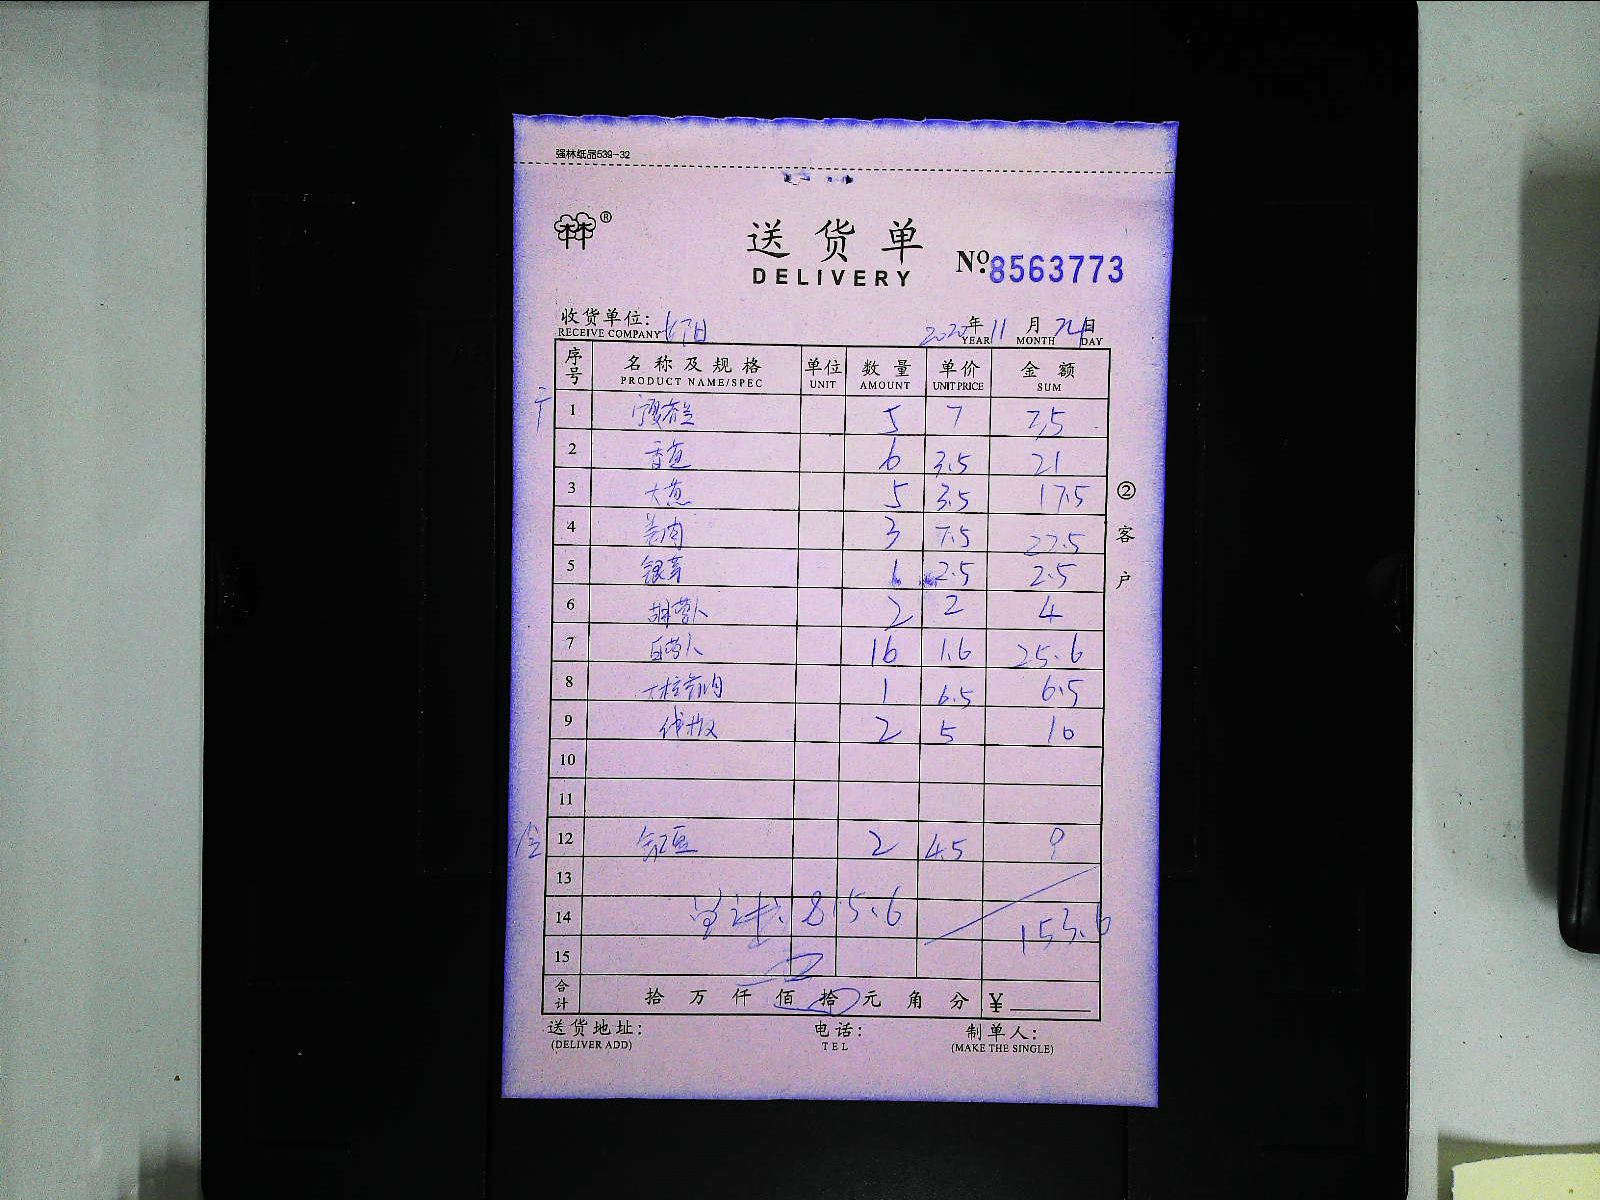 强林纸品539-32
®
送货单
DELIVERY
No.8563773
收货单位:
RECEIVE COMPANY
2020年11月24日
YEAR MONTH DAY
序号 名称及规格 单位 数量 单价 金额
PRODUCT NAME/SPEC UNIT AMOUNT UNIT PRICE SUM
1 5 7
2 6 3.5 21
3 大葱 5 3.5 17.5
4 3 7.5 22.5
5 银芽 1 2.5 2.5
6 胡萝卜 2 2 4
7 白萝卜 16 1.6 25.6
8 1 6.5 6.5
9 2 5 10
10
11
12 缸豆 2 4.5 9
13
14 总计: 815.6 153.6
15
合计 拾万仟佰拾元角分 ¥
送货地址: 电话: 制单人:
(DELIVER ADD) TEL (MAKE THE SINGLE)
②客户